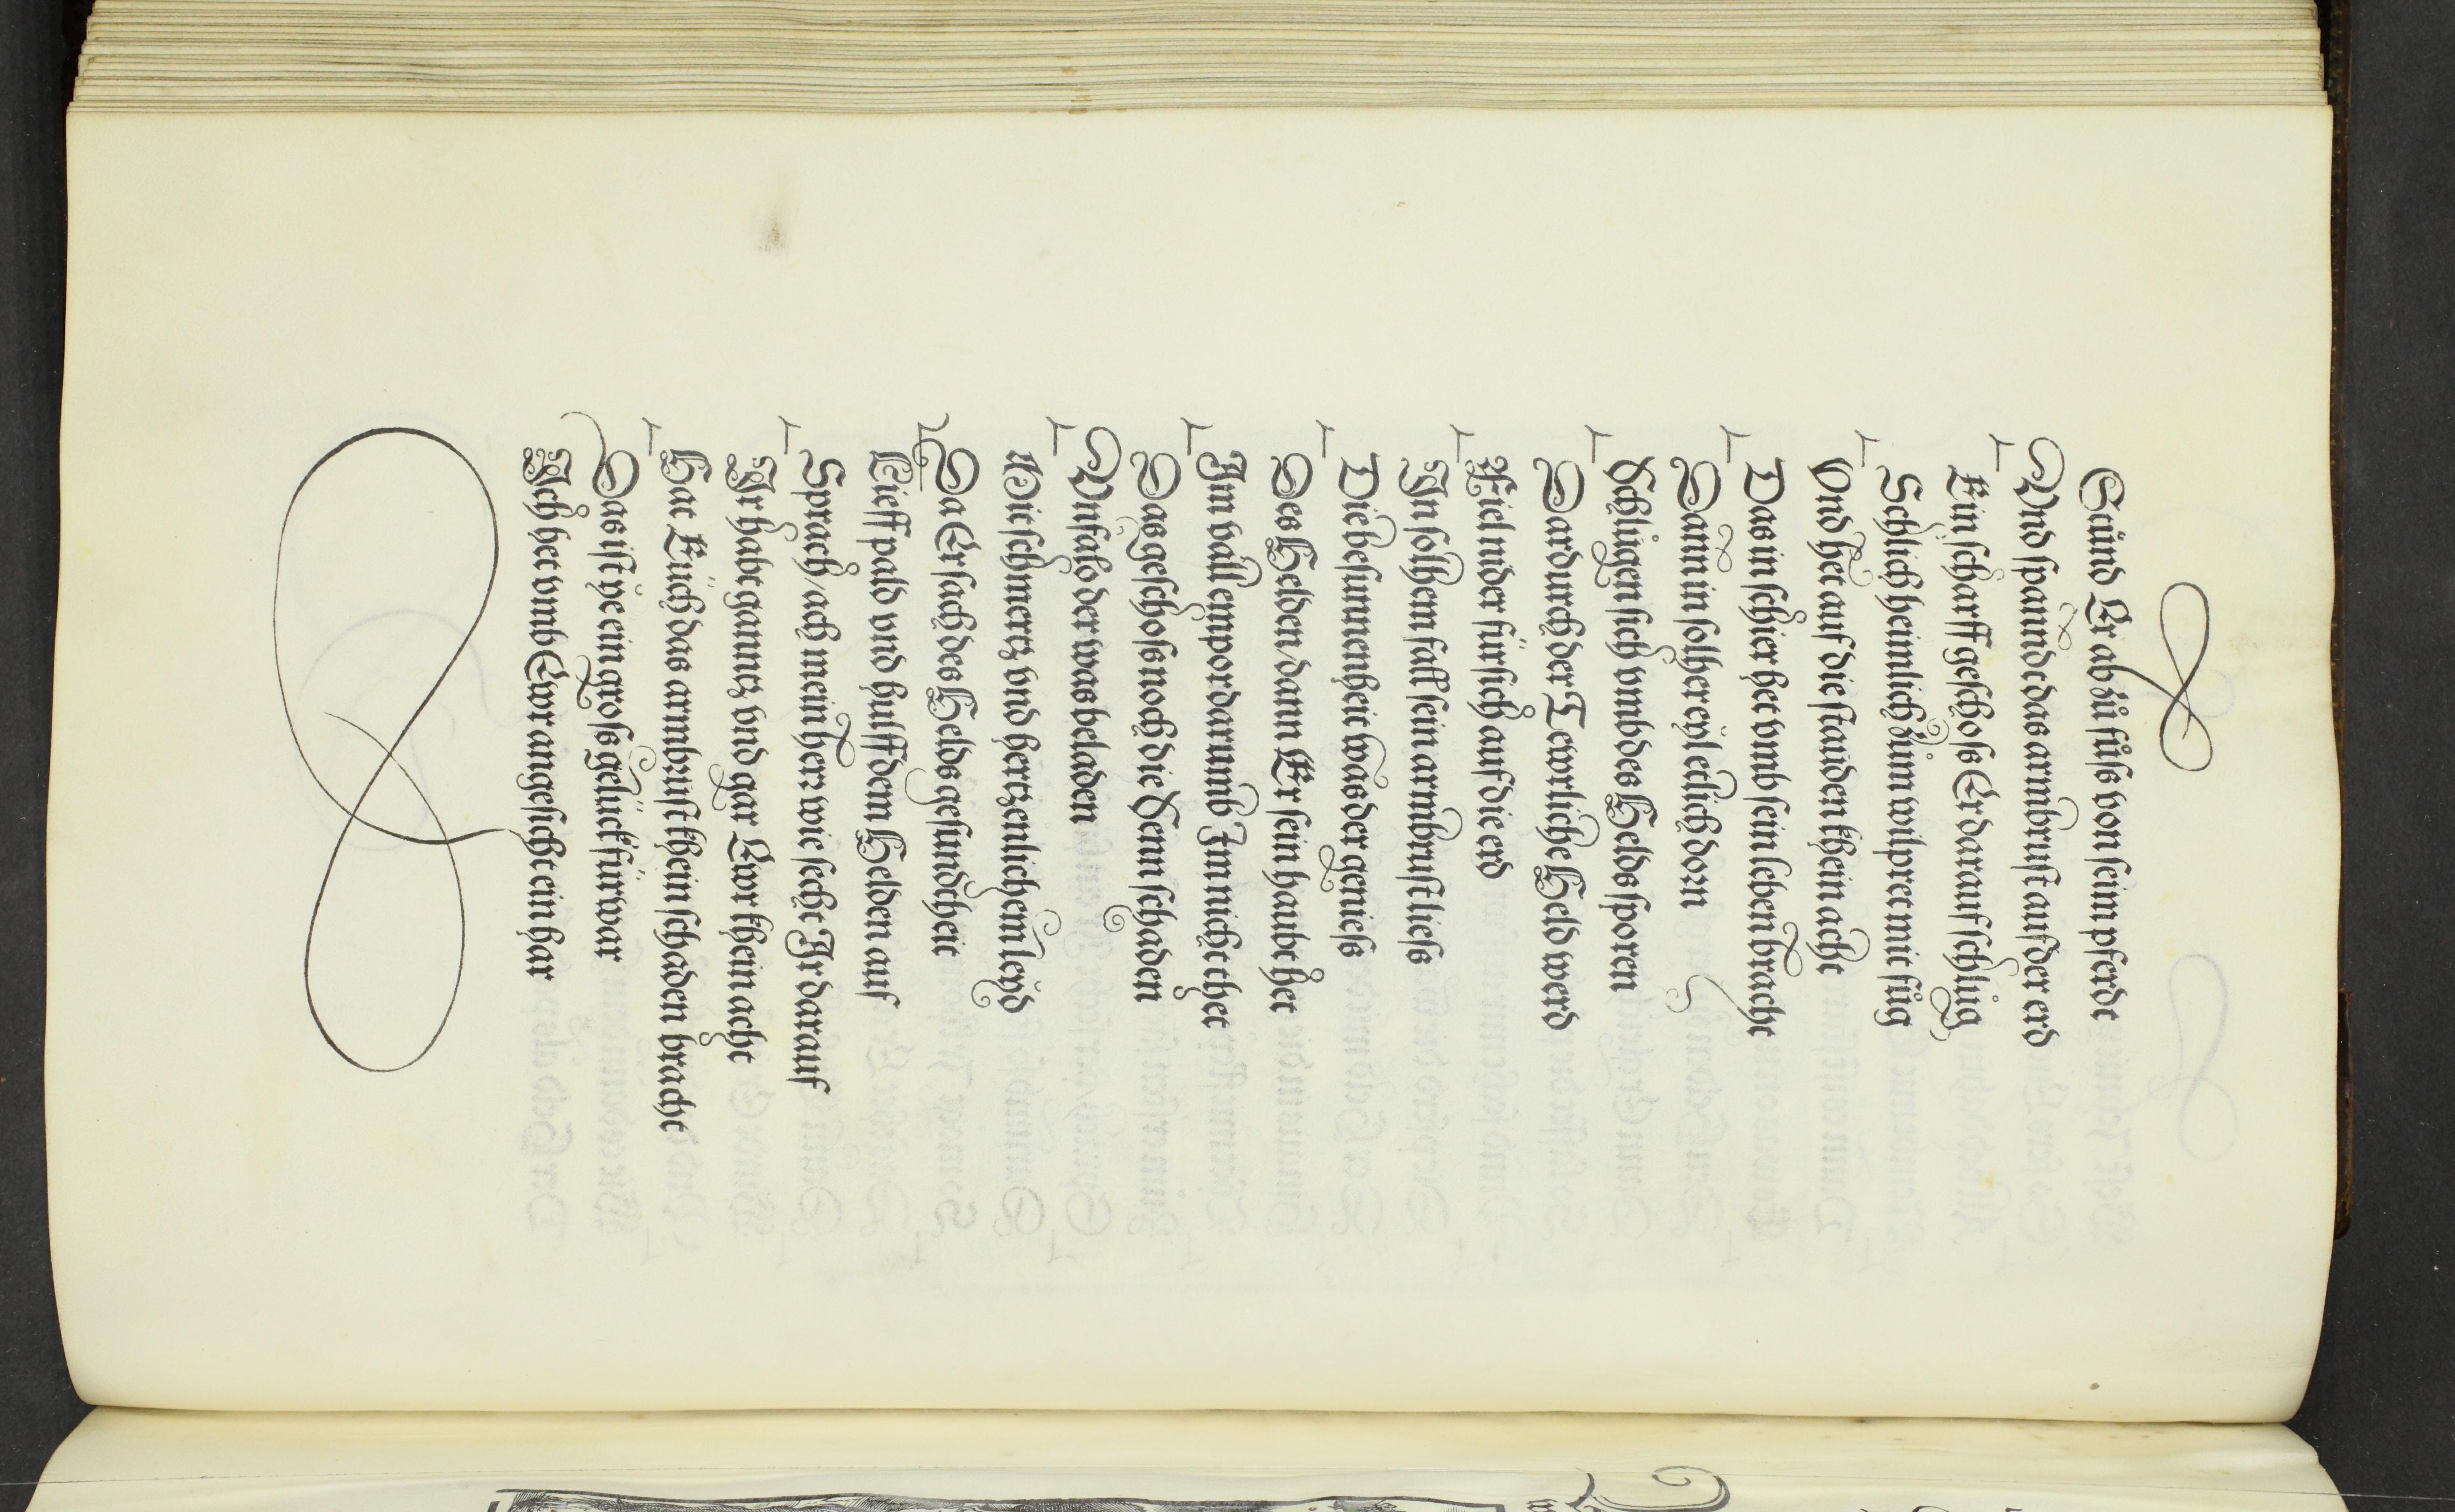 Stůnd Er ab zů fůſs von ſeim pferdt
Vnd ſpanndt das armbruſt auf der erd
Ein ſcharff geſchoſs Er darauf ſchlůg
Schlich heimlich zům wilpret mit fůg
Vnd het auf die ſtauden khein acht
Das in ſchier het vmb ſein leben bracht
Dann in ſolher eyl etlich dorn
Schlůgen ſich vmb des Helds ſporen
Dardurch der Tewrliche Held werd
Fiel nider für ſich auf die erd
In ſolhem fall ſein armbruſt lieſs
Die beſunnenheit was der genieſs
Des Helden dann Er ſein haubt het
Im väll empor darumb Im nicht thet
Das geſchoſs noch die Senn ſchaden
Vnfalo der was beladen
Mit ſchmertz vnd hertzenlichem leyd
Da Er ſach des Helds geſundtheit
Lieff pald vnd hulff dem Helden auf
Sprach/ ach mein herr wie ſecht Ir darauf
Ir habt ganntz vnd gar Ewr khein acht
Hat Eüch das armbruſt khein ſchaden bracht
Das iſt ye ein groſs gelückh fürwar
Ich het vmb Ewr angeſicht ein har